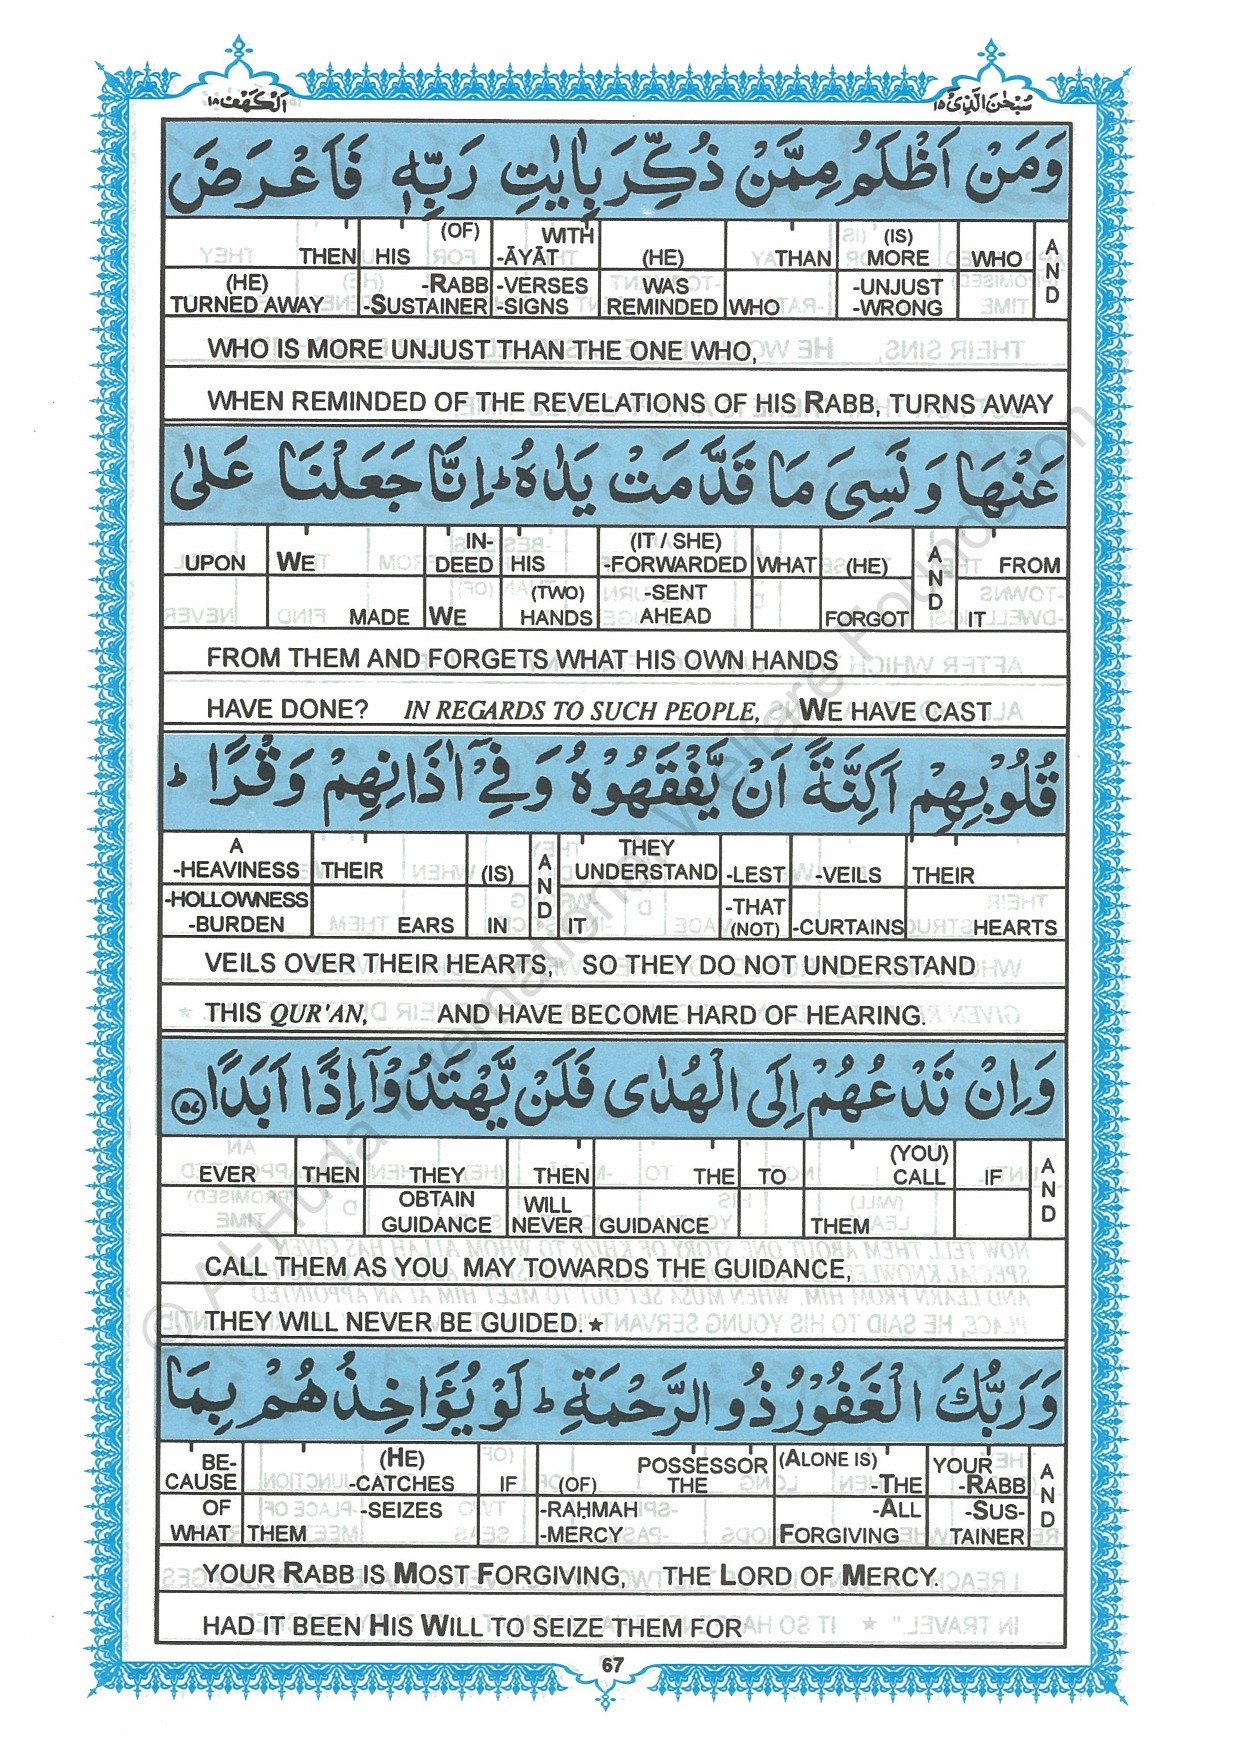 اَلْكَهْف ١٨
سُبْحٰنَ الَّذِیْ ١٥
وَمَنْ اَظْلَمُ مِمَّنْ ذُكِّرَ بِاٰیٰتِ رَبِّهٖ فَاَعْرَضَ
THEN HIS (OF) WITH -ĀYĀT (HE) THAN (IS) MORE WHO AND
(HE) TURNED AWAY -RABB -SUSTAINER -VERSES -SIGNS WAS REMINDED WHO -UNJUST -WRONG
WHO IS MORE UNJUST THAN THE ONE WHO,
WHEN REMINDED OF THE REVELATIONS OF HIS RABB, TURNS AWAY
عَنْهَا وَنَسِیَ مَا قَدَّمَتْ یَدٰهُ ؕ اِنَّا جَعَلْنَا عَلٰی
UPON WE IN-DEED HIS (IT / SHE) -FORWARDED WHAT (HE) AND FROM
MADE WE (TWO) HANDS -SENT AHEAD FORGOT IT
FROM THEM AND FORGETS WHAT HIS OWN HANDS
HAVE DONE? IN REGARDS TO SUCH PEOPLE, WE HAVE CAST
قُلُوْبِهِمْ اَكِنَّةً اَنْ یَّفْقَهُوْهُ وَفِیْۤ اٰذَانِهِمْ وَقْرًا ؕ
A -HEAVINESS THEIR (IS) AND THEY UNDERSTAND -LEST -VEILS THEIR
-HOLLOWNESS -BURDEN EARS IN IT -THAT (NOT) -CURTAINS HEARTS
VEILS OVER THEIR HEARTS, SO THEY DO NOT UNDERSTAND
THIS QUR'AN, AND HAVE BECOME HARD OF HEARING.
وَاِنْ تَدْعُهُمْ اِلَی الْهُدٰی فَلَنْ یَّهْتَدُوْۤا اِذًا اَبَدًا ﴿٥٧﴾
EVER THEN THEY THEN THE TO (YOU) CALL IF AND
OBTAIN GUIDANCE WILL NEVER GUIDANCE THEM
CALL THEM AS YOU MAY TOWARDS THE GUIDANCE,
THEY WILL NEVER BE GUIDED.★
وَرَبُّكَ الْغَفُوْرُ ذُو الرَّحْمَةِ ؕ لَوْ یُؤَاخِذُهُمْ بِمَا
BE-CAUSE (HE) -CATCHES IF (OF) POSSESSOR THE (ALONE IS) -THE YOUR -RABB AND
OF WHAT THEM -SEIZES -RAḤMAH -MERCY -ALL FORGIVING -SUS-TAINER
YOUR RABB IS MOST FORGIVING, THE LORD OF MERCY.
HAD IT BEEN HIS WILL TO SEIZE THEM FOR
67
© Al-Huda International Welfare Foundation